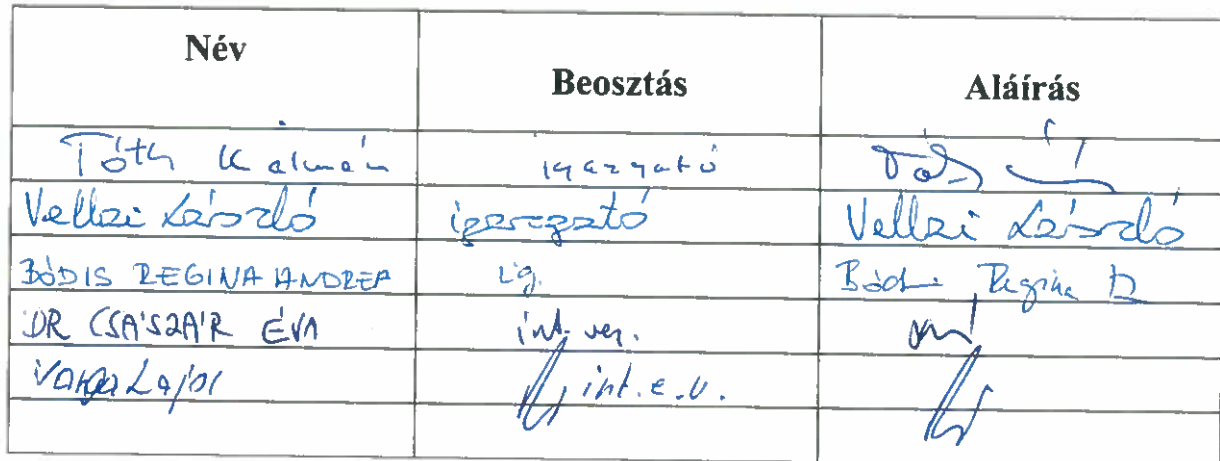 Név Beosztás Aláírás
Tóth Kálmán igazgató Tóth
Vellai László igazgató Vellai László
BÓDIS REGINA ANDREA ig. Bódis Regina A
DR CSÁSZÁR ÉVA int. ver.
Varga Lajos int. e. v.